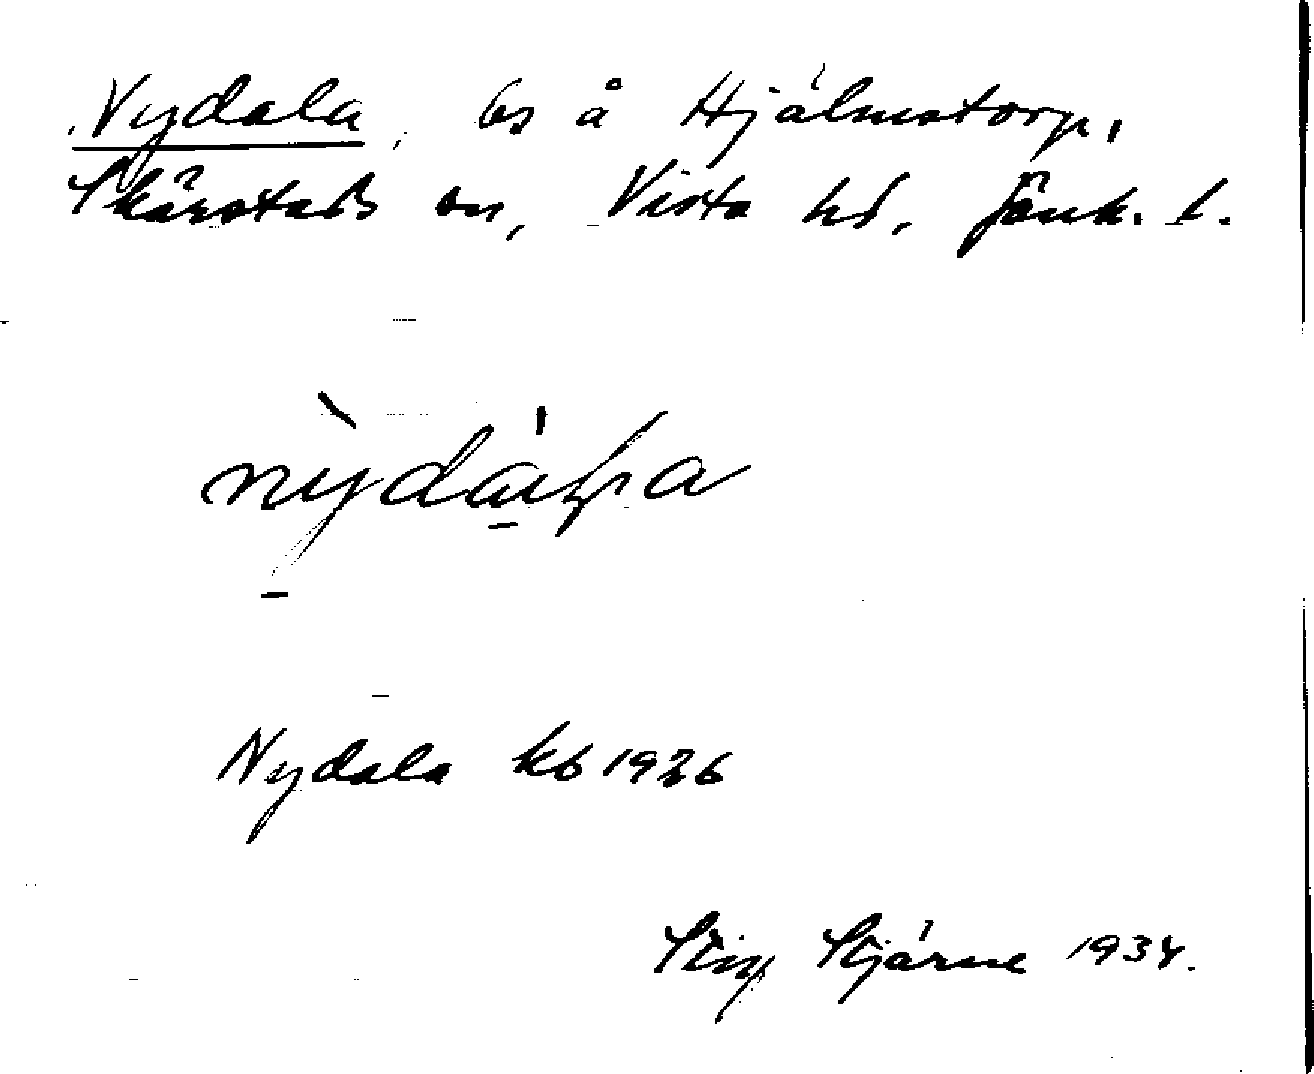 Nydala, bs å Hjälmstorp,
Skärstads sn, Vista hd, Jönk. l.
Nydala kb 1926
Stig Stjärne 1934.